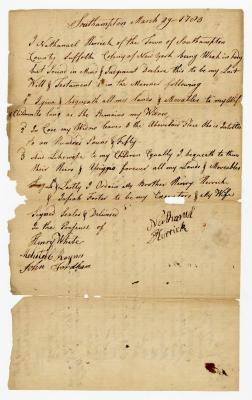 Southampton March 29 - 1783
I Nathanael Herrick of the Town of Southampton
County Suffolk Colony of New York Being Weak in body
but Sound in Mind & Judgment Declare this to be my Last
Will & Testament in the Manner following
I give & bequeath all my Lands & Movables to my Wife
long as She Remains my Widow
In Case my Widow leaves the
One Hundred Pounds & Fifty
also Likewise to my Children Equally I bequeath to them
their Heirs & Assigns forever all my Lands & Movables
Lastly I Ordain My Brother Henry Herrick
& Josiah Foster to be my Executors & My Wife
Signed Sealed & Delivered
In the Presence of
Henry White
Haynes
John Fordham
Nathanael
Herrick